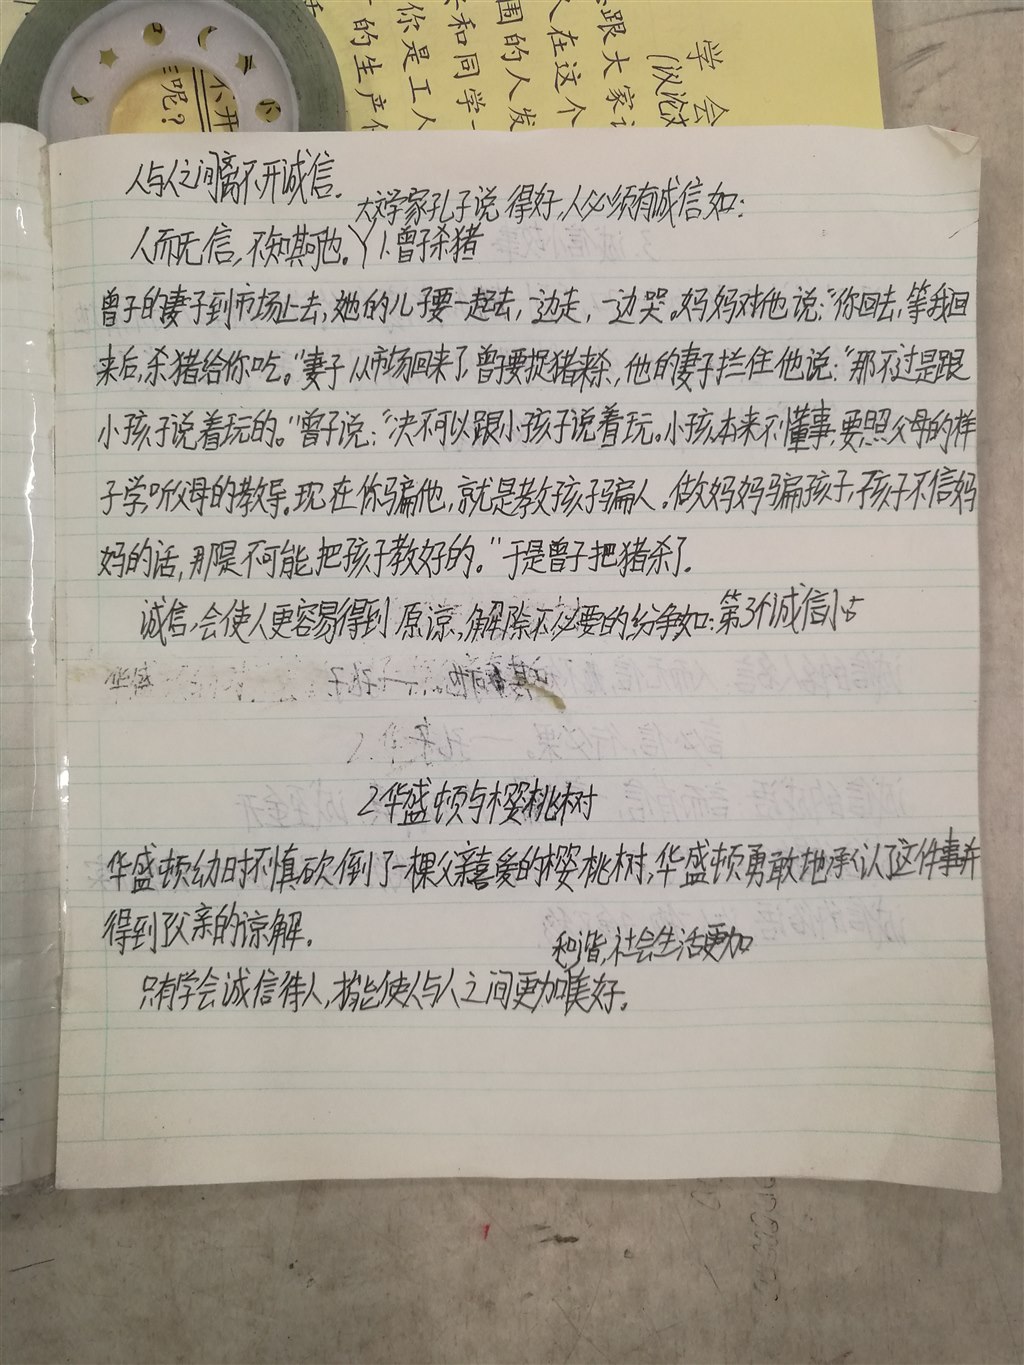 学会
(议论文
跟大家
人在这个
围的人发
和同学
你是工人
的生产
不开
呢?
人与人之间离不开诚信。
大文学家孔子说得好,人必须有诚信如:
人而无信,不知其可也。丫1.曾子杀猪
曾子的妻子到市场上去,她的儿子要一起去,一边走,一边哭。妈妈对他说:“你回去,等我回
来后,杀猪给你吃。”妻子从市场回来了,曾子要捉猪来杀,他的妻子拦住他说:“那不过是跟
小孩子说着玩的。”曾子说:“决不可以跟小孩子说着玩。小孩本来不懂事,要照父母的样
子学,听父母的教导。现在你骗他,就是教孩子骗人。做妈妈骗孩子,孩子不信妈
妈的话,那是不可能把孩子教好的。”于是曾子把猪杀了。
诚信,会使人更容易得到原谅,解除不必要的纷争如:第3个诚信小古
2.华盛顿与樱桃树
华盛顿幼时不慎砍倒了一棵父亲喜爱的樱桃树,华盛顿勇敢地承认了这件事并
得到父亲的谅解。
和谐,社会生活更加
只有学会诚信待人,才能使人与人之间更加美好。